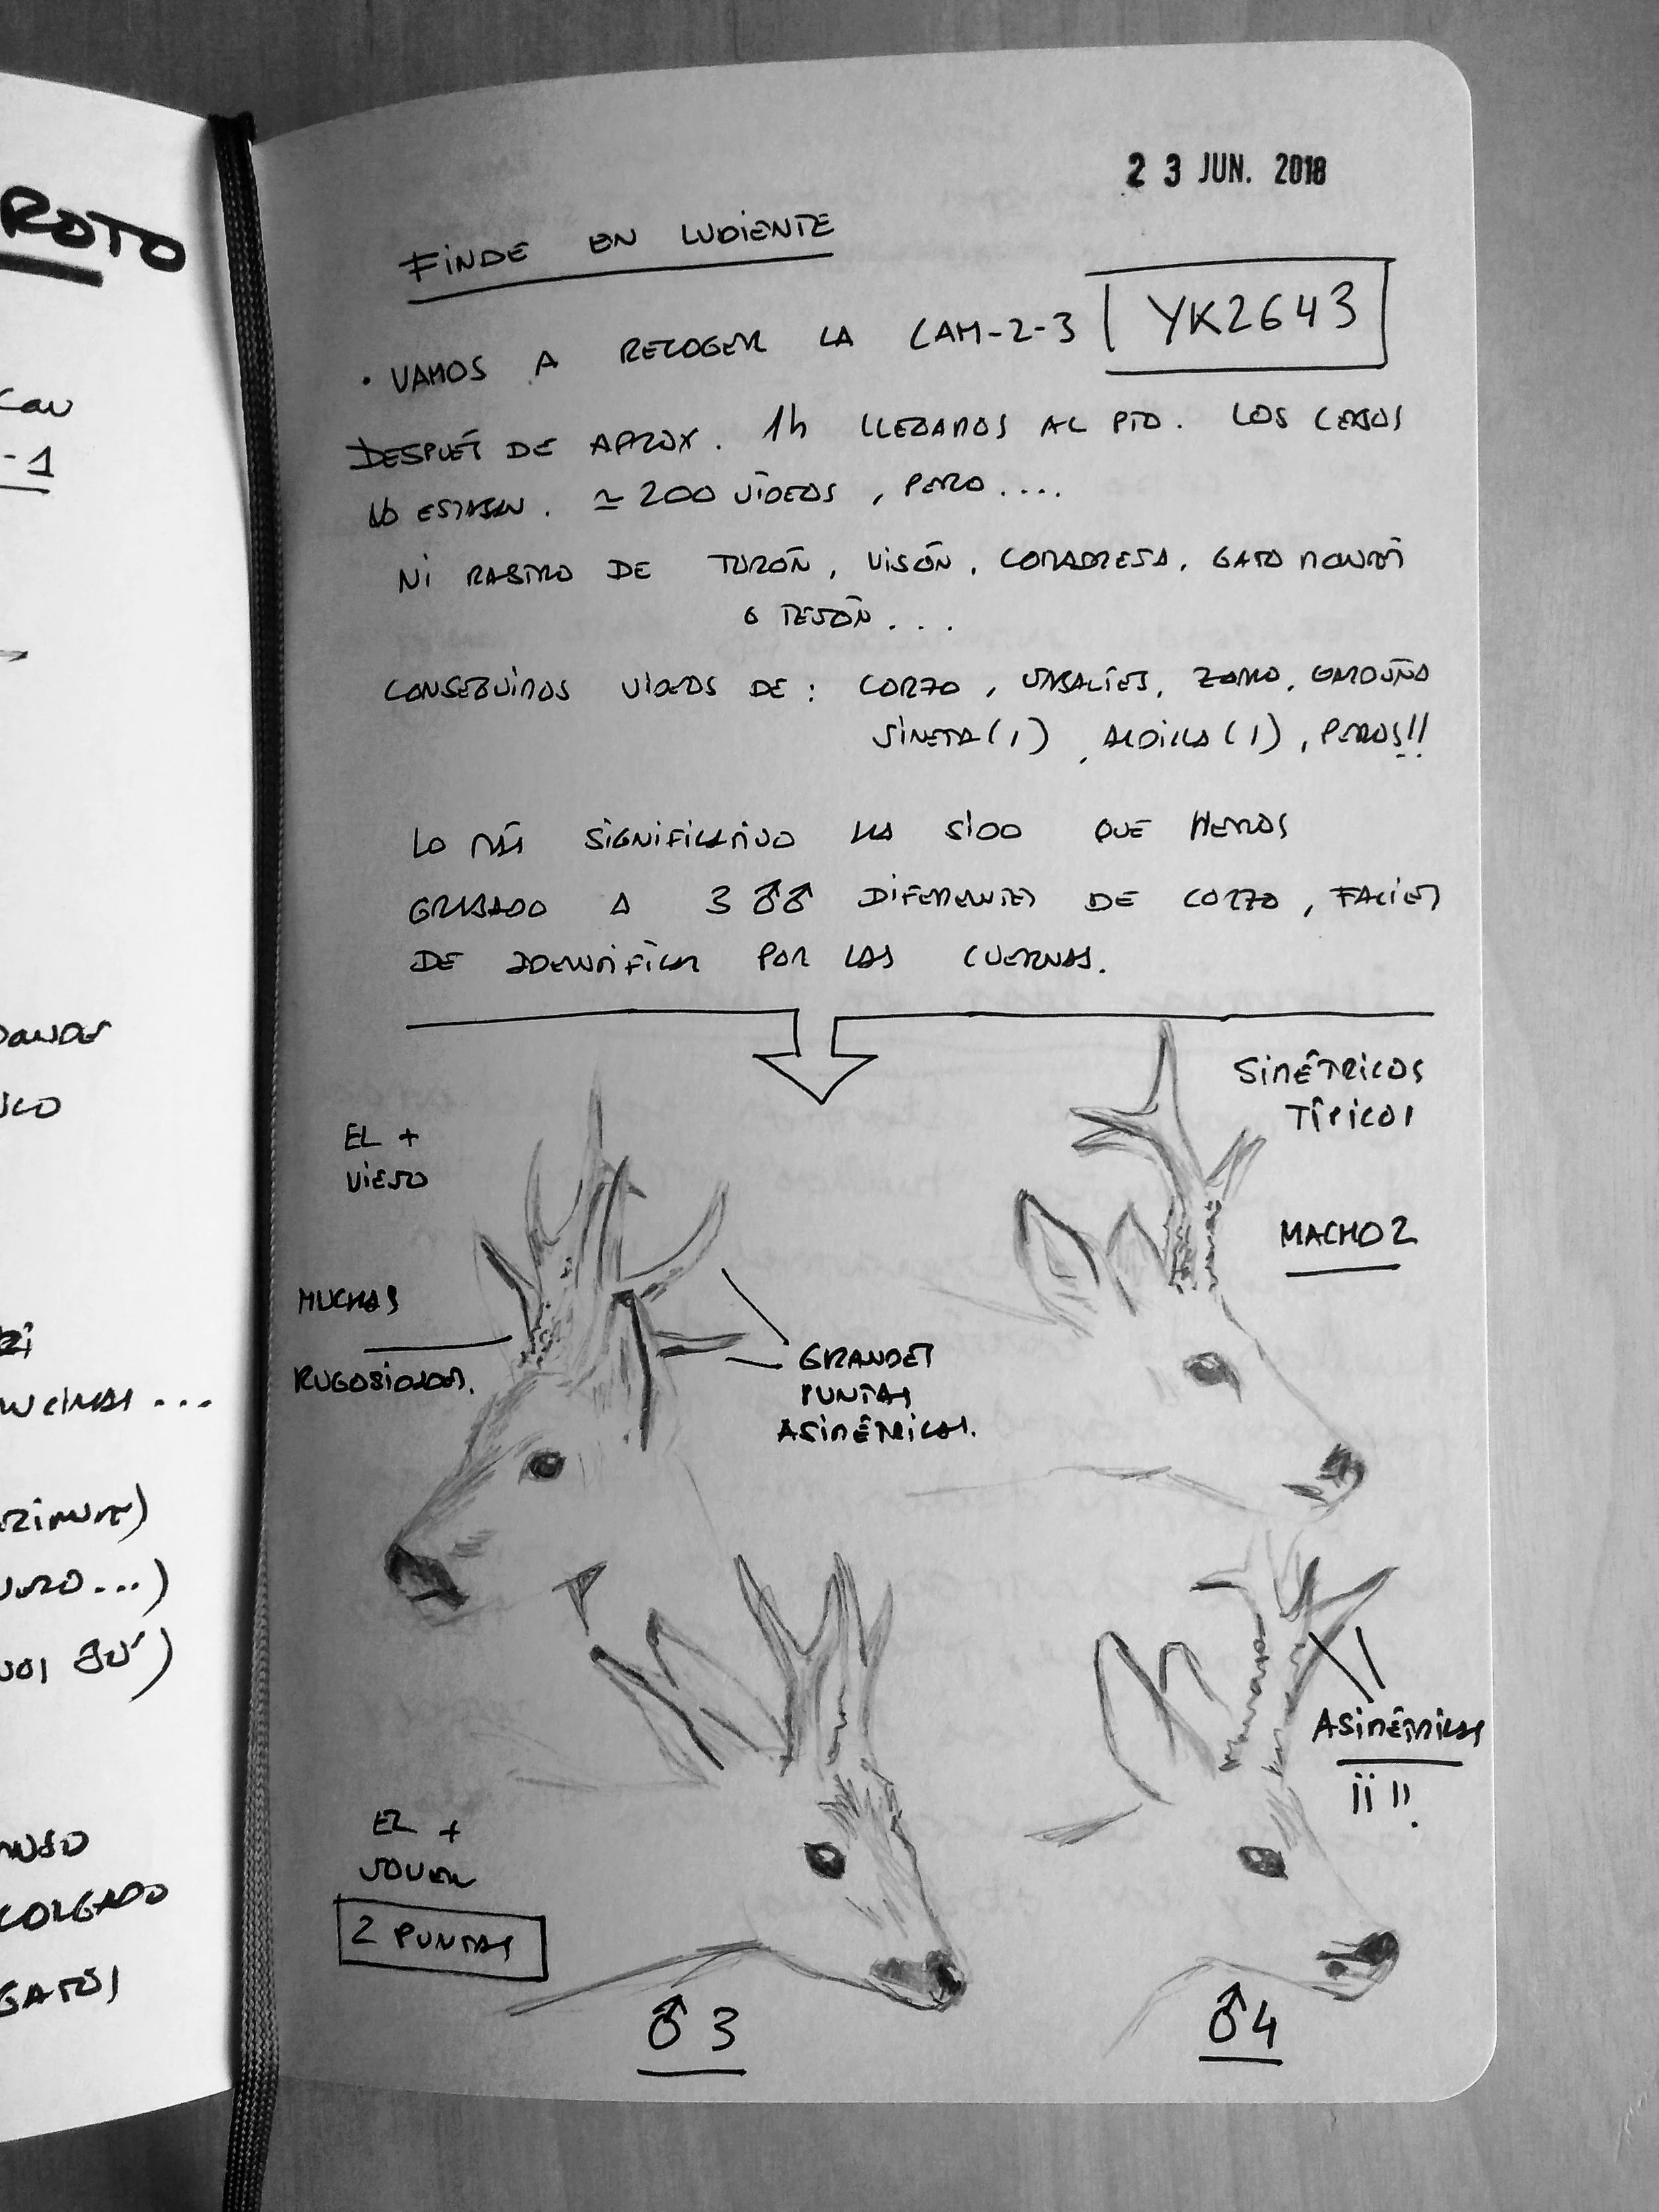 ROTO
-1
COLGADO
GATOS
23 JUN. 2018
FINDE EN LUDIENTE
• VAMOS A RECOGER LA CAM-2-3 YK2643
DESPUÉS DE APROX. 1h LLEGAMOS AL PTO. LOS CEBOS
NO ESTABAN. ≃ 200 VÍDEOS, PERO....
NI RASTRO DE TURÓN, VISÓN, COMADREJA, GATO MONTÉS
o TEJÓN...
CONSEGUIMOS VÍDEOS DE: CORZO, JABALÍES, ZORRO, GARDUÑA
GINETA (1), ARDILLA (1), PERROS!!
LO MÁS SIGNIFICATIVO HA SIDO QUE HEMOS
GRABADO A 3 ♂♂ DIFERENTES DE CORZO, FÁCILES
DE IDENTIFICAR POR LAS CUERNAS.
SIMÉTRICOS
TÍPICOS
EL +
VIEJO
MACHO 2
MUCHAS
RUGOSIDADES.
GRANDES
PUNTAS
ASIMÉTRICAS.
ASIMÉTRICAS
¡¡ !!
EL +
JOVEN
2 PUNTAS
♂ 3
♂ 4